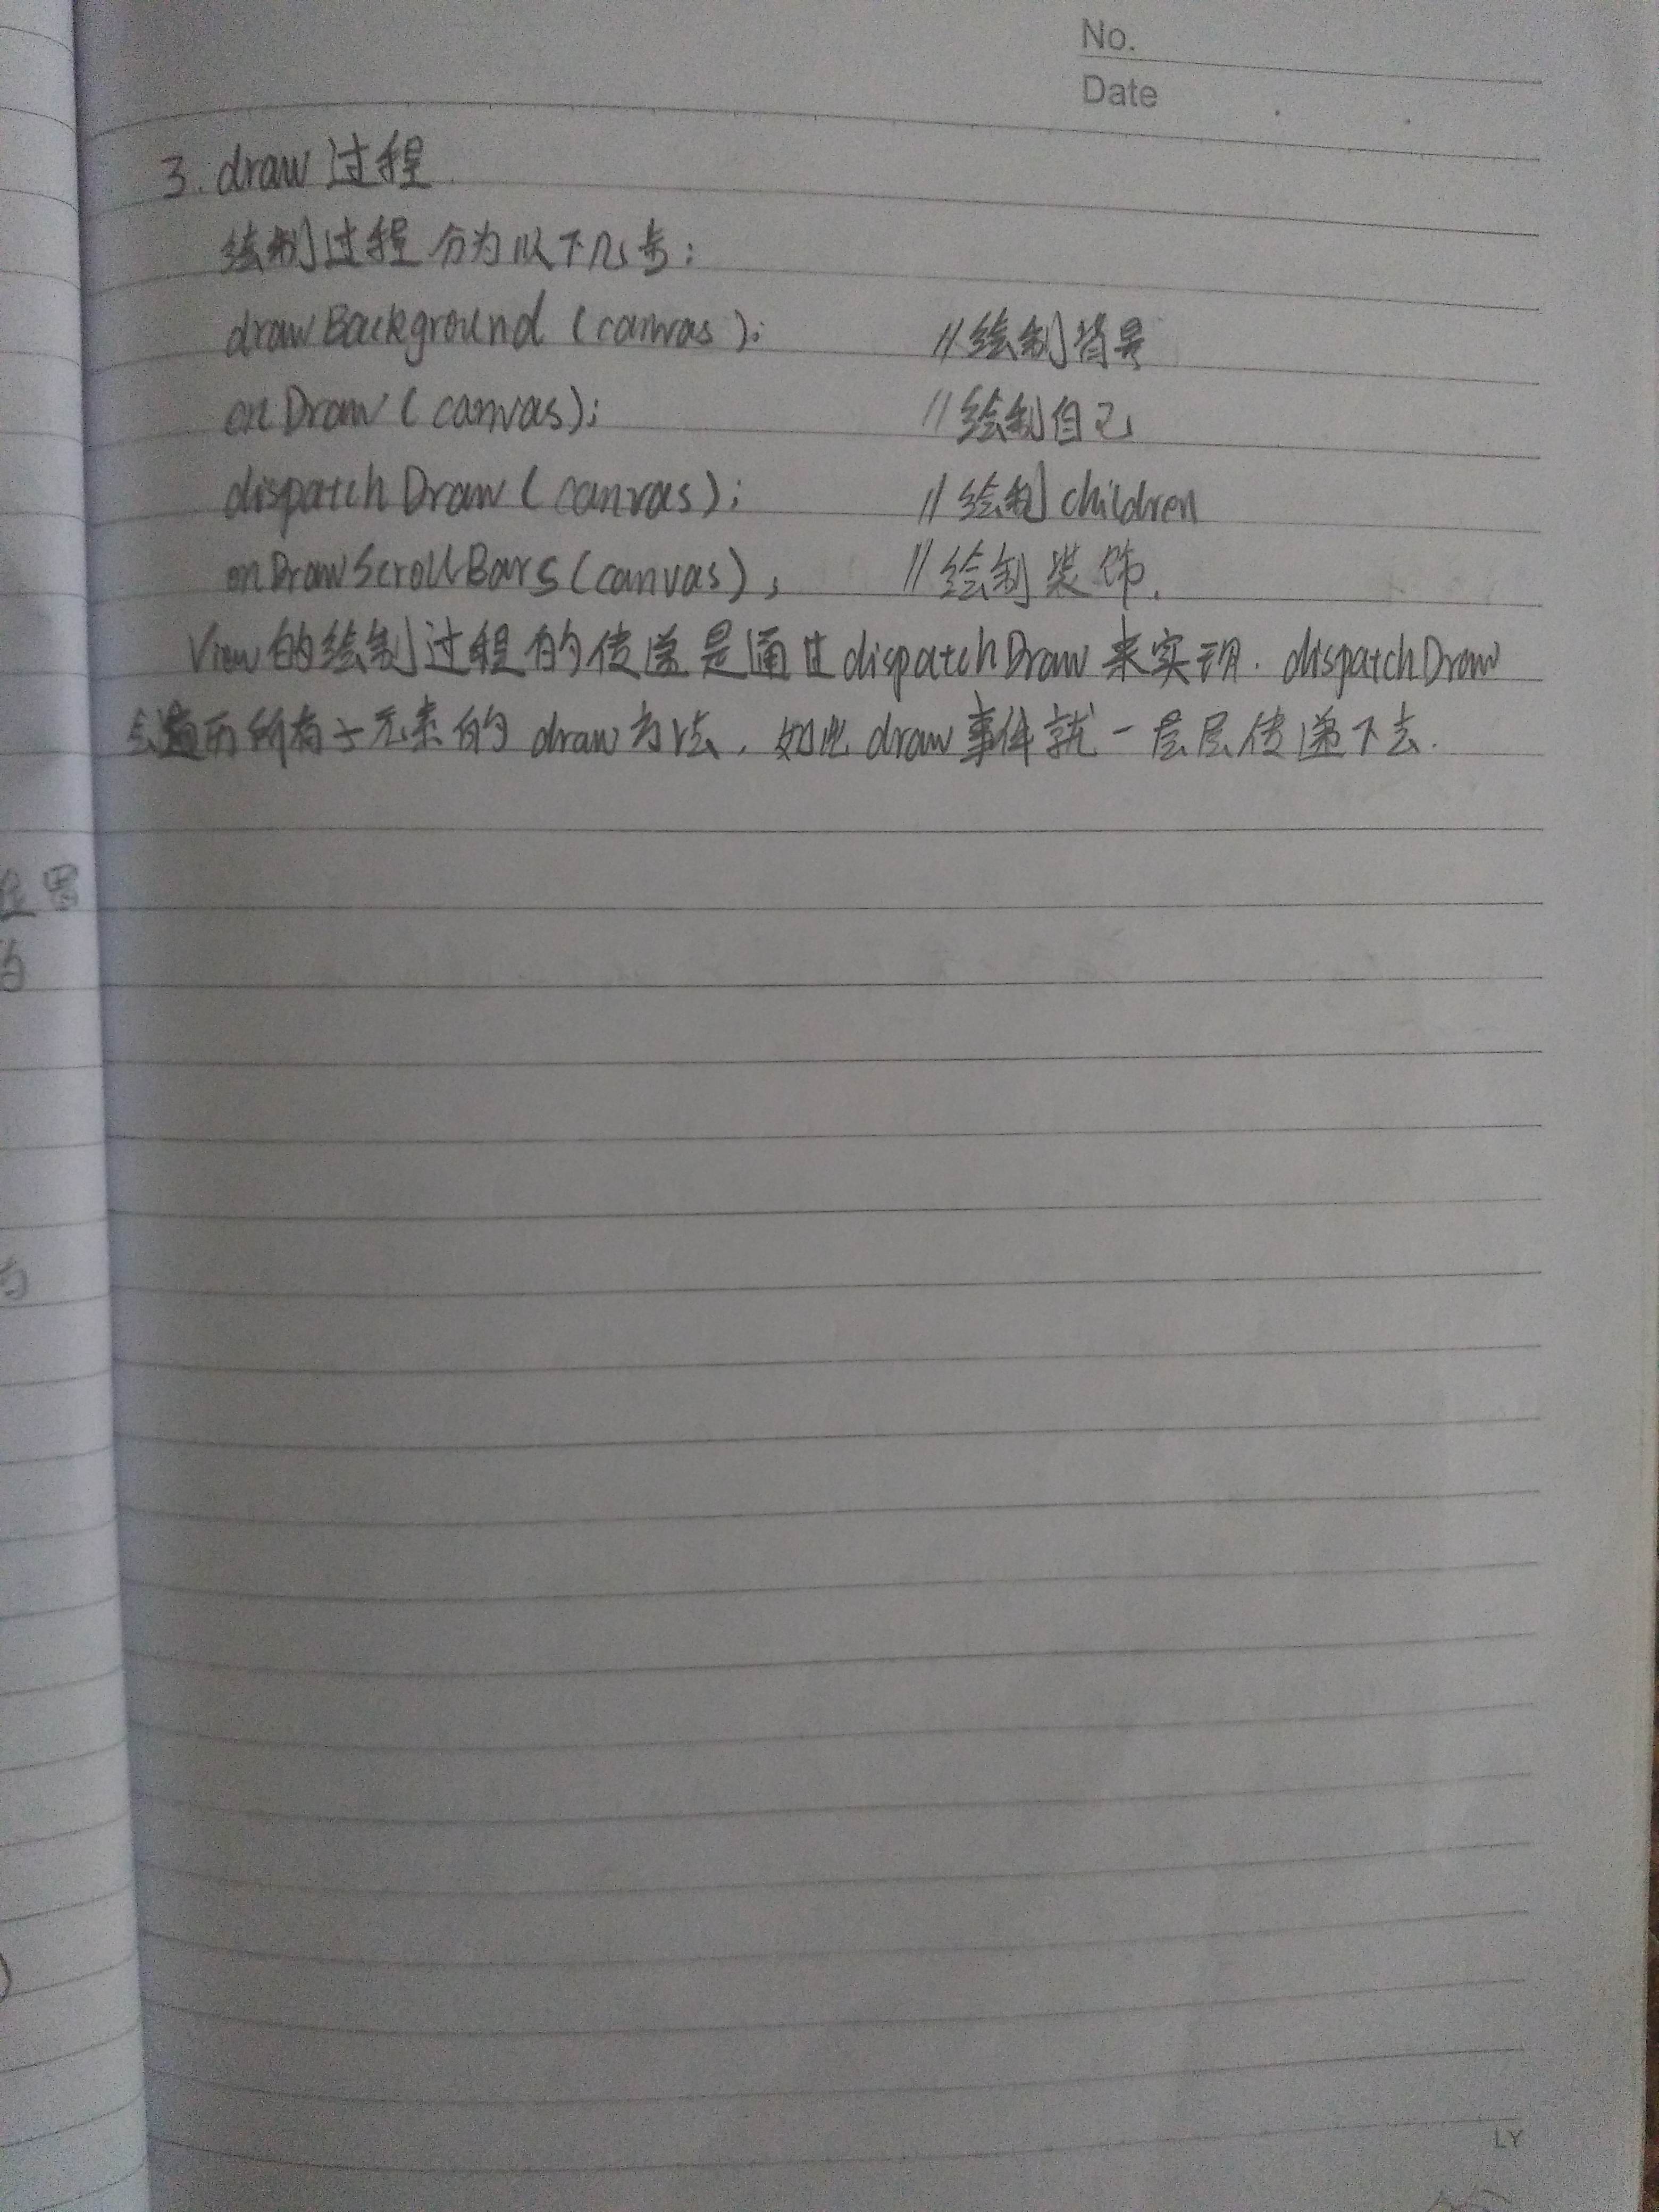 No.
Date
3. draw 过程
绘制过程分为以下几步:
drawBackground (canvas); //绘制背景
onDraw (canvas); //绘制自己
dispatchDraw (canvas); //绘制 children
onDrawScrollBars (canvas); //绘制装饰.
View的绘制过程的传递是通过dispatchDraw来实现. dispatchDraw
会遍历所有子元素的 draw 方法. 如此 draw 事件就一层层传递下去.
位置
的
LY